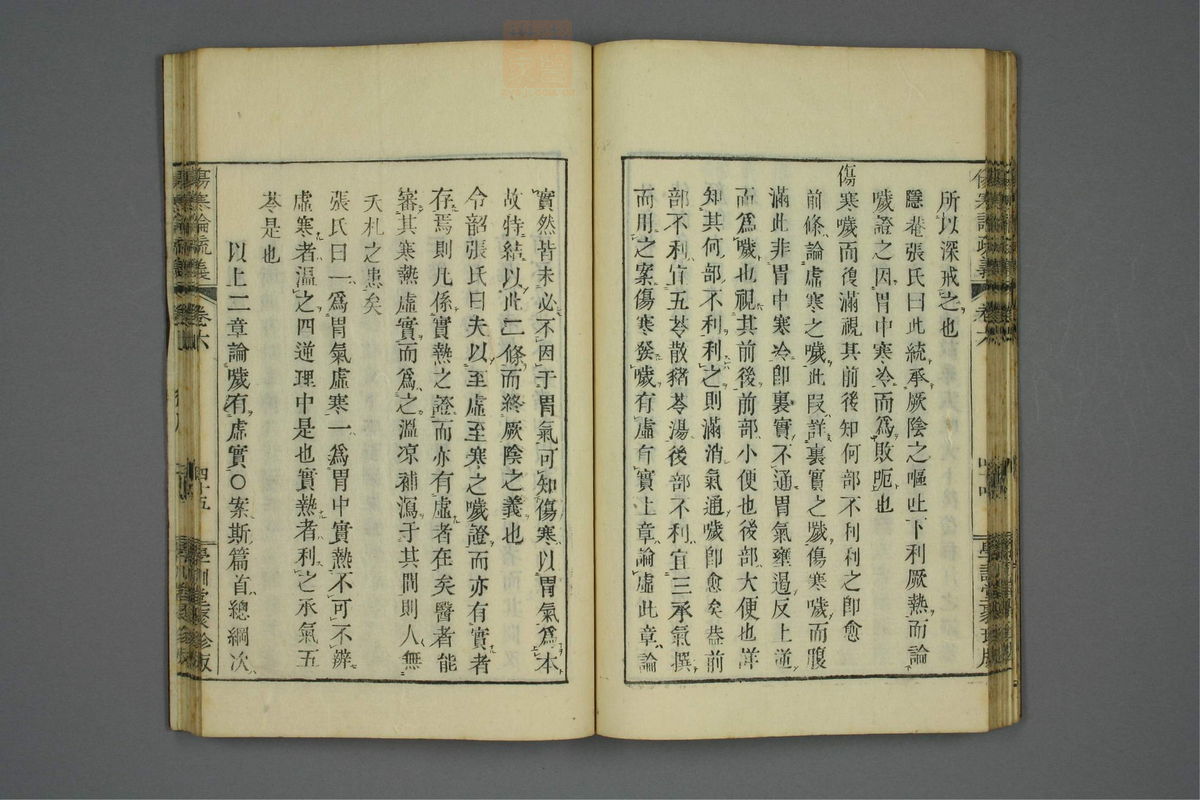 所以深戒之也
隱菴張氏曰此統承厥陰之嘔吐下利厥熱而論
噦證之因胃中寒冷而爲敗呃也
傷寒噦而腹滿視其前後知何部不利利之卽愈
前條論虛寒之噦此段詳裏實之噦傷寒噦而腹
滿此非胃中寒冷卽裏實不通胃氣壅遏反上逆
而爲噦也視其前後前部小便也後部大便也詳
知其何部不利利之則滿消氣通噦卽愈矣葢前
部不利宜五苓散豬苓湯後部不利宜三承氣撰
而用之案傷寒發噦有虛有實上章論虛此章論
實然皆未必不因于胃氣可知傷寒以胃氣爲本
故特結以此二條而終厥陰之義也
令韶張氏曰夫以至虛至寒之噦證而亦有實者
存焉則凡係實熱之證而亦有虛者在矣醫者能
審其寒熱虛實而爲之溫凉補瀉于其間則人無
夭札之患矣
張氏曰一爲胃氣虛寒一爲胃中實熱不可不辨
虛寒者溫之四逆理中是也實熱者利之承氣五
苓是也
以上二章論噦有虛實○案斯篇首總綱次
傷寒論疏義
卷六
四十五
學訓堂聚珍版